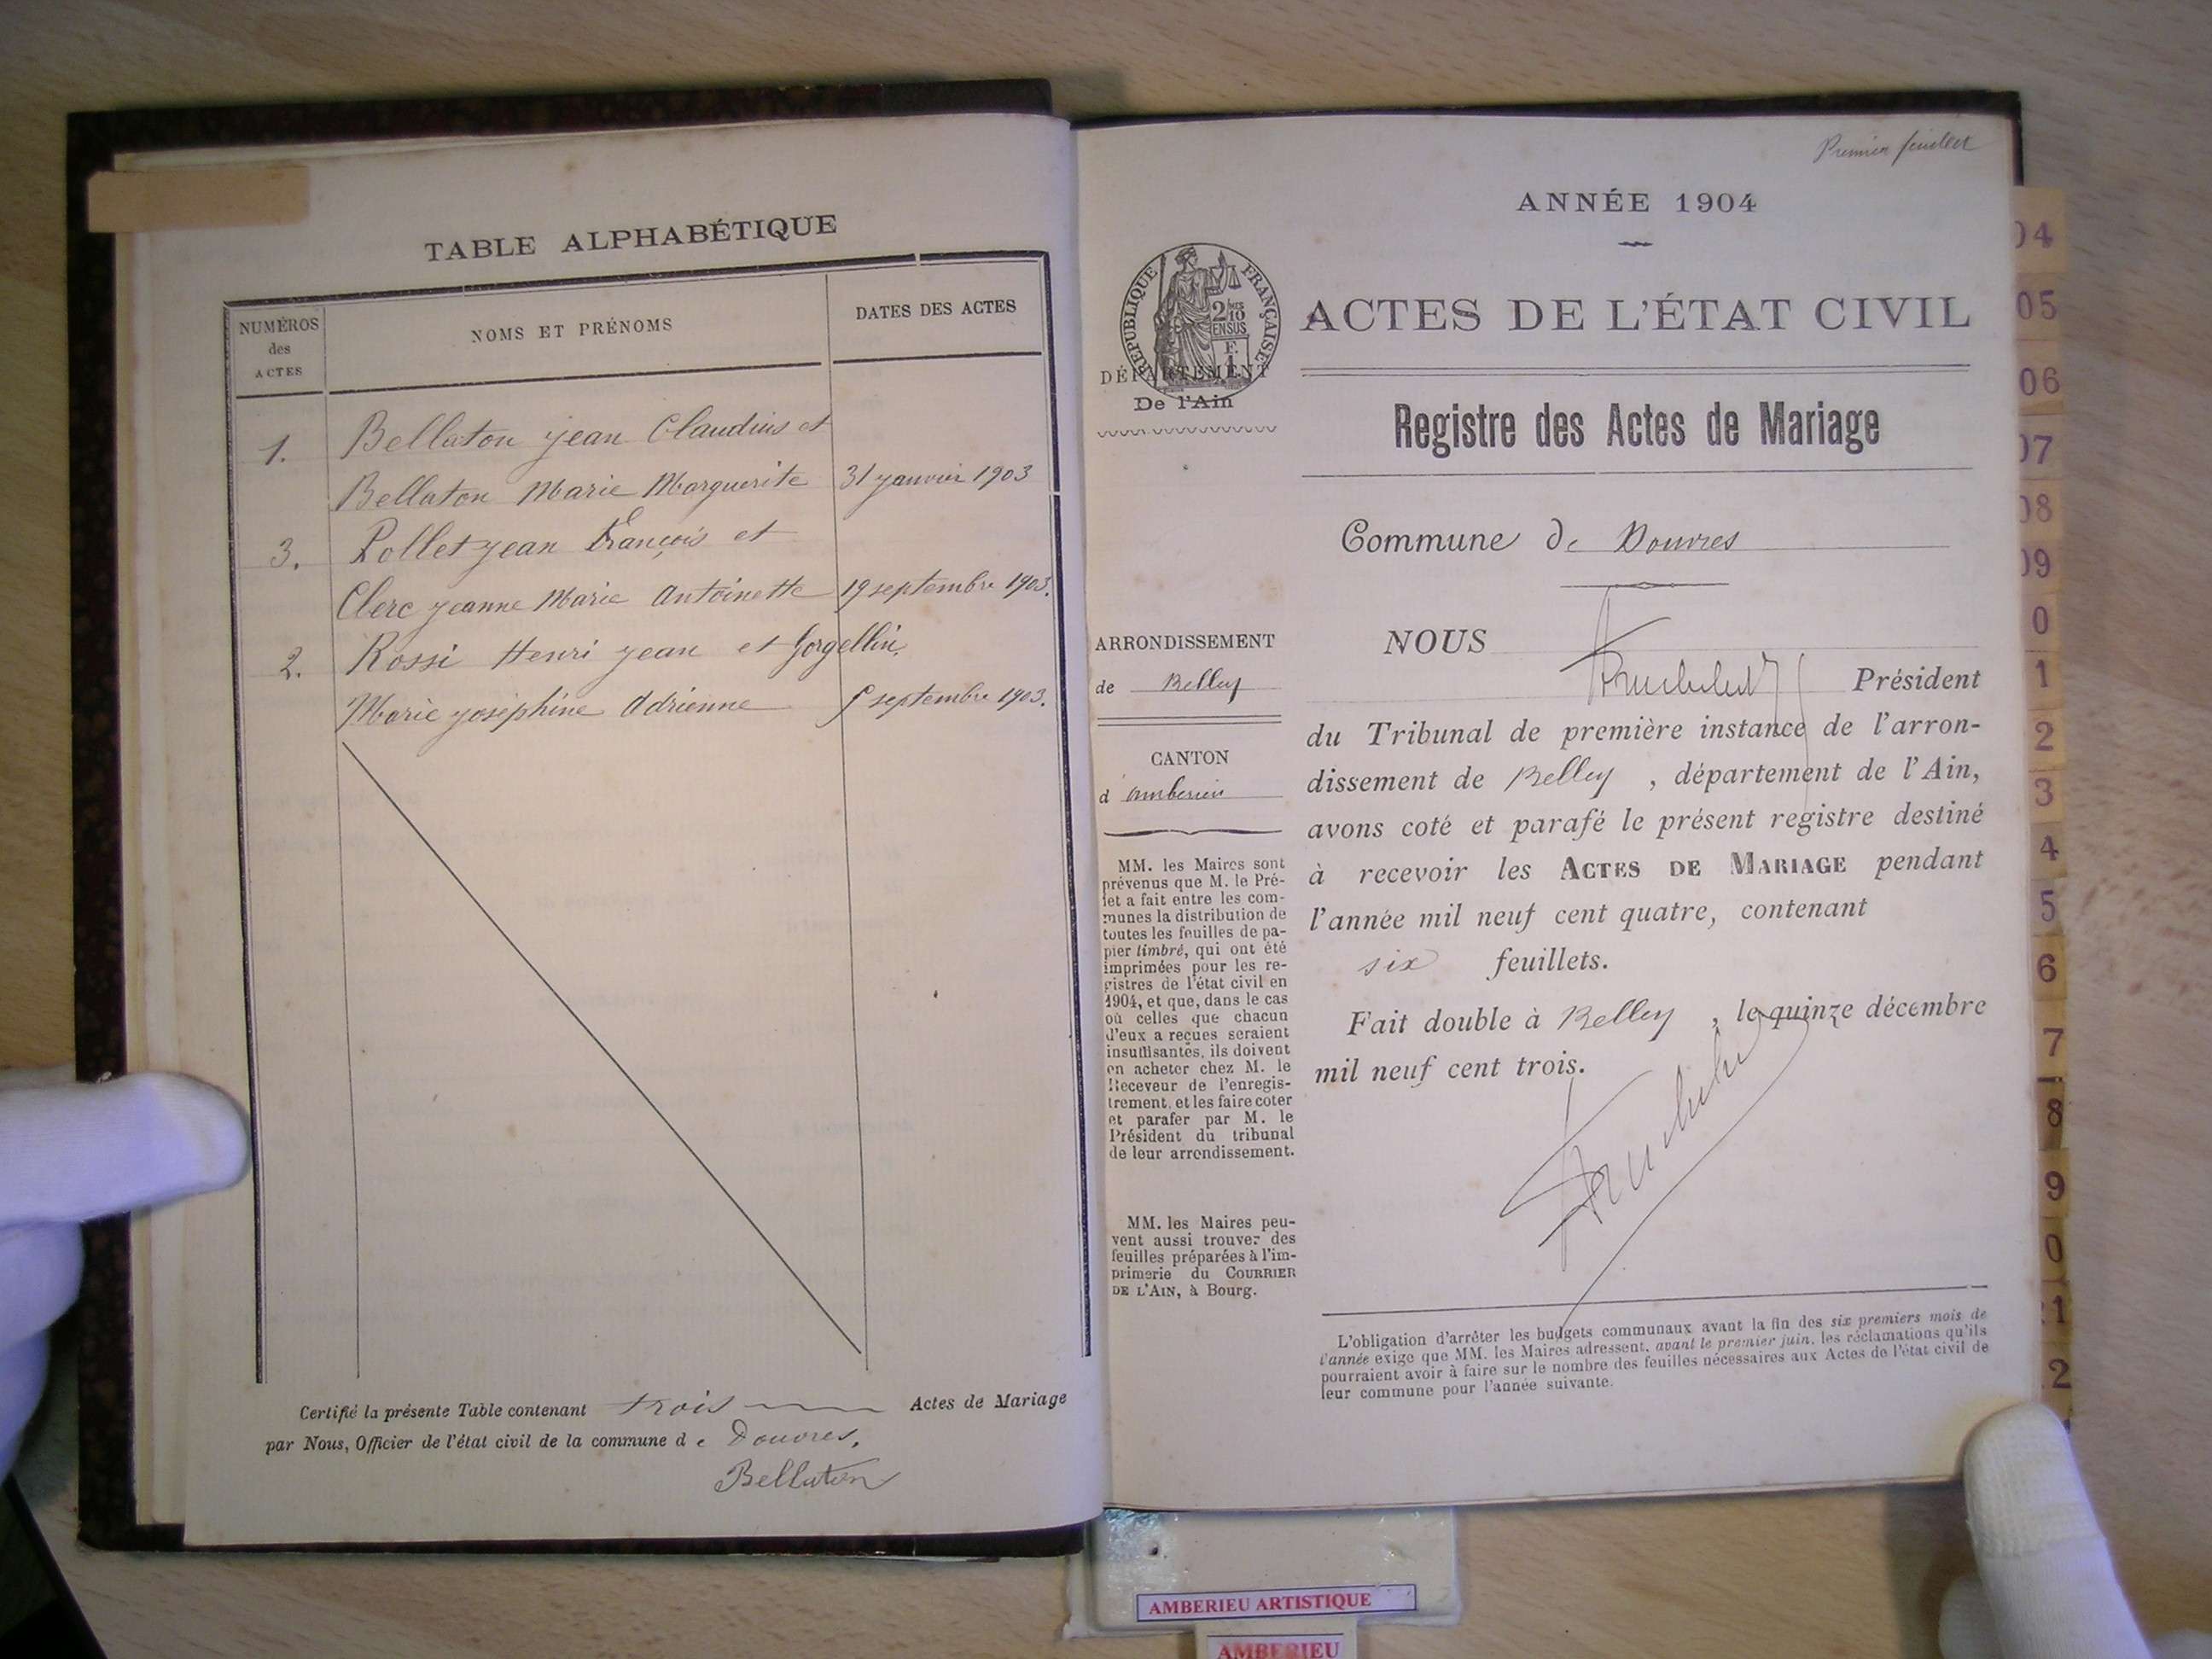 TABLE ALPHABÉTIQUE
NUMÉROS
des
ACTES
NOMS ET PRÉNOMS
DATES DES ACTES
1. Bellaton Jean Claudius et
Bellaton Marie Marguerite 31 janvier 1903
3. Pollet Jean François et
Clerc Jeanne Marie Antoinette 19 septembre 1903.
2. Rossi Henri Jean et
Marie Joséphine Adrienne septembre 1903.
Certifié la présente Table contenant trois Actes de Mariage
par Nous, Officier de l'état civil de la commune de Douvres.
Bellaton
Premier feuillet
ANNÉE 1904
RÉPUBLIQUE FRANÇAISE
2/10
EN SUS
F.
1
ACTES DE L'ÉTAT CIVIL
DÉPARTEMENT
De l'Ain
Registre des Actes de Mariage
Commune de Douvres
ARRONDISSEMENT
de Belley
CANTON
d'Amberieu
MM. les Maires sont
prévenus que M. le Pré-
fet a fait entre les com-
munes la distribution de
toutes les feuilles de pa-
pier timbré, qui ont été
imprimées pour les re-
gistres de l'état civil en
1904, et que, dans le cas
où celles que chacun
d'eux a reçues seraient
insuffisantes, ils doivent
en acheter chez M. le
Receveur de l'enregis-
trement, et les faire coter
et parafer par M. le
Président du tribunal
de leur arrondissement.
MM. les Maires peu-
vent aussi trouver des
feuilles préparées à l'im-
primerie du COURRIER
DE L'AIN, à Bourg.
NOUS
Président
du Tribunal de première instance de l'arron-
dissement de Belley, département de l'Ain,
avons coté et parafé le présent registre destiné
à recevoir les ACTES DE MARIAGE pendant
l'année mil neuf cent quatre, contenant
six feuillets.
Fait double à Belley, le quinze décembre
mil neuf cent trois.
L'obligation d'arrêter les budgets communaux avant la fin des six premiers mois de
l'année exige que MM. les Maires adressent, avant le premier juin, les réclamations qu'ils
pourraient avoir à faire sur le nombre des feuilles nécessaires aux Actes de l'état civil de
leur commune pour l'année suivante.
04
05
06
07
08
09
0
1
2
3
4
5
6
7
8
9
0
1
2
AMBERIEU ARTISTIQUE
AMBERIEU